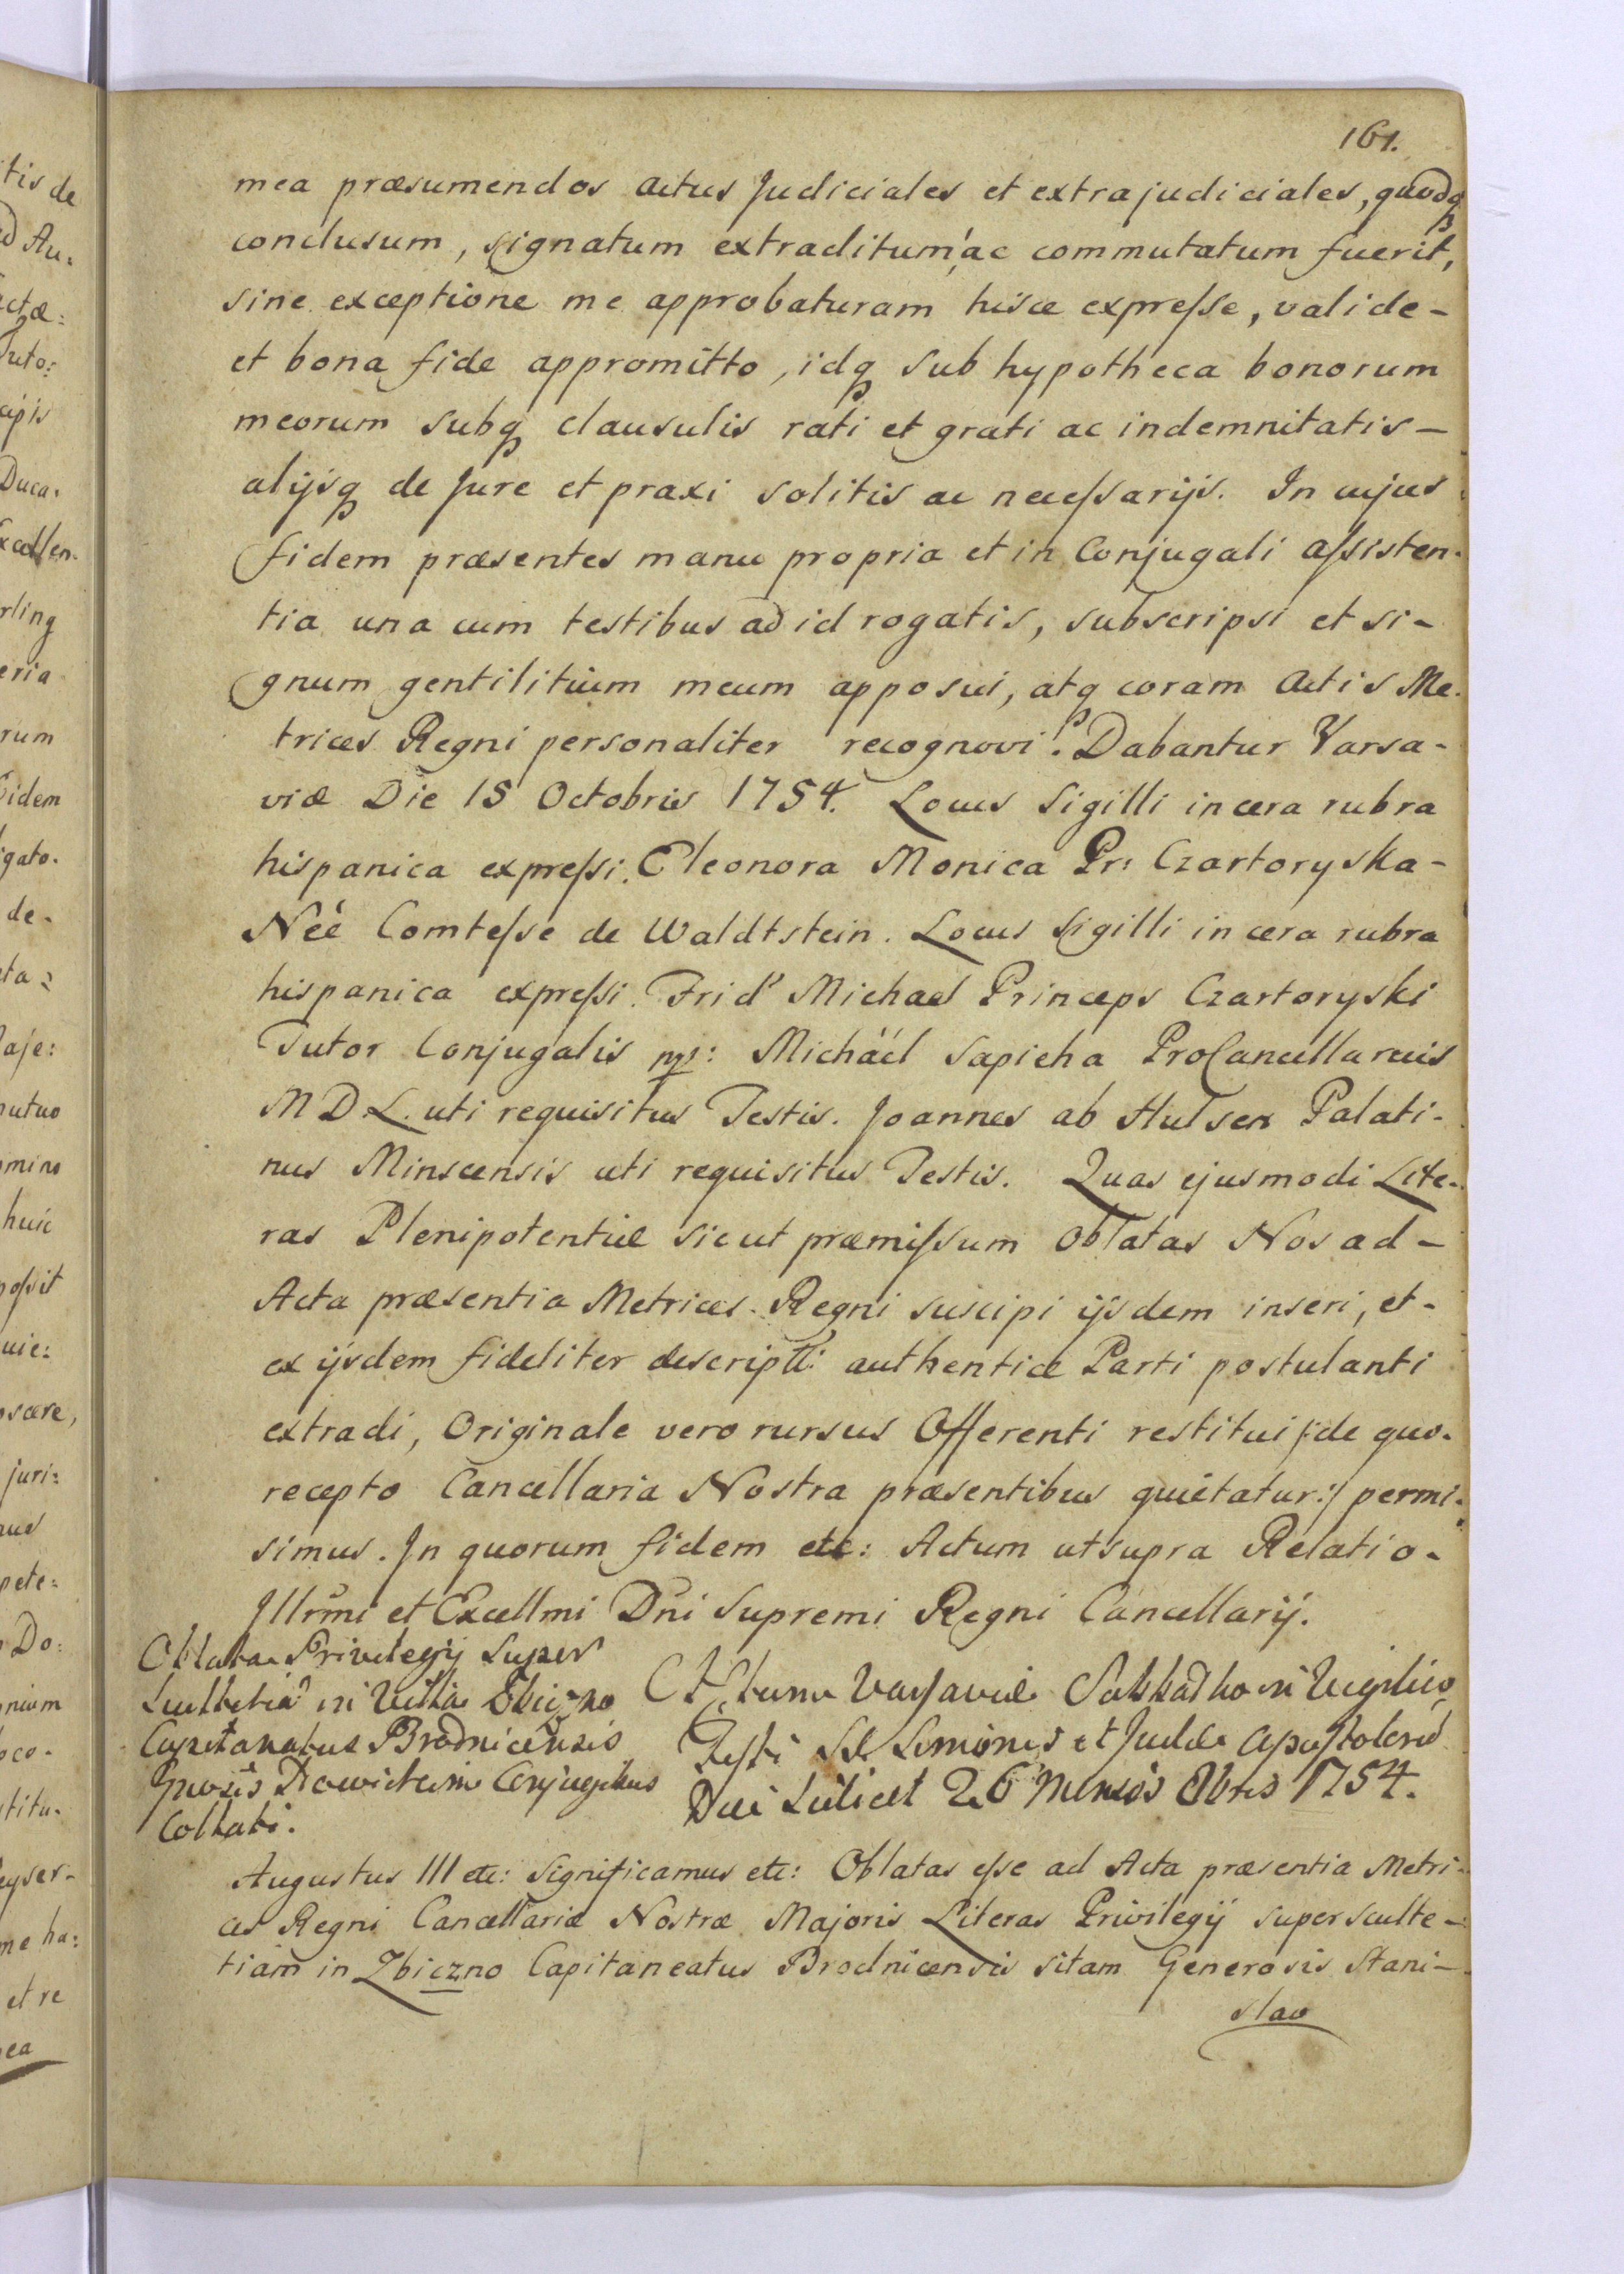 161.
mea præsumendos actus Judiciales et extrajudiciales, quodq
conclusum, signatum extraditum, ac commutatum fuerit,
sine exceptione me approbaturam hisce expresse, valide-
et bona fide appromitto, idq sub hypotheca bonorum
meorum subq clausulis rati et grati ac indemnitatis-
alijsq de Jure et praxi solitis ac necessarijs. In cujus
fidem præsentes manu propria et in Conjugali assisten-
tia una cum testibus ad id rogatis, subscripsi et si-
gnum gentilitium meum apposui, atq coram Actis Me-
trices Regni personaliter recognovi. Dabantur Varsa-
viæ Die 15 Octobris 1754. Locus Sigilli in cera rubra
hispanica expressi. Eleonora Monica Pr: Czartoryska-
Neé Comtesse de Waldtstein. Locus Sigilli in cera rubra
hispanica expressi. Frid' Michael Princeps Czartoryski
Tutor Conjugalis mp: Michàel Sapieha ProCancellarius
MDL. uti requisitus Testis. Joannes ab Hulsen Palati-
nus Minscensis uti requisitus Testis. Quas ejusmodi Lite-
ras Plenipotentiæ sicut præmissum Oblatas Nos ad-
Acta præsentia Metrices Regni suscipi ijsdem inseri, et-
ex ijsdem fideliter descriptũ authentice Parti postulanti
extradi, Originale vero rursus Offerenti restitui /:de quo-
recepto Cancellaria Nostra præsentibus quietatur:/ permi-
simus. In quorum fidem etc: Actum ut supra Relatio-
Illrmi et Excellmi Dni Supremi Regni Cancellarij.
Oblata Privilegij super
Scultetiã in Villa Zbiczno
Capitanatus Brodnicensis
Gnosis Conjugibus
Collati.
Actum Varsaviæ Sabbatho in Vigilia
Festi SS. Simonis et Judæ Apostolorũ
Die scilicet 26 Mensis Obris 1754.
Augustus III etc: Significamus etc: Oblatas esse ad Acta præsentia Metri-
ces Regni Cancellariæ Nostræ Majoris Literas Privilegij super sculte-
tiam in Zbiczno Capitaneatus Brodnicensis sitam Generosis Stani-
slao